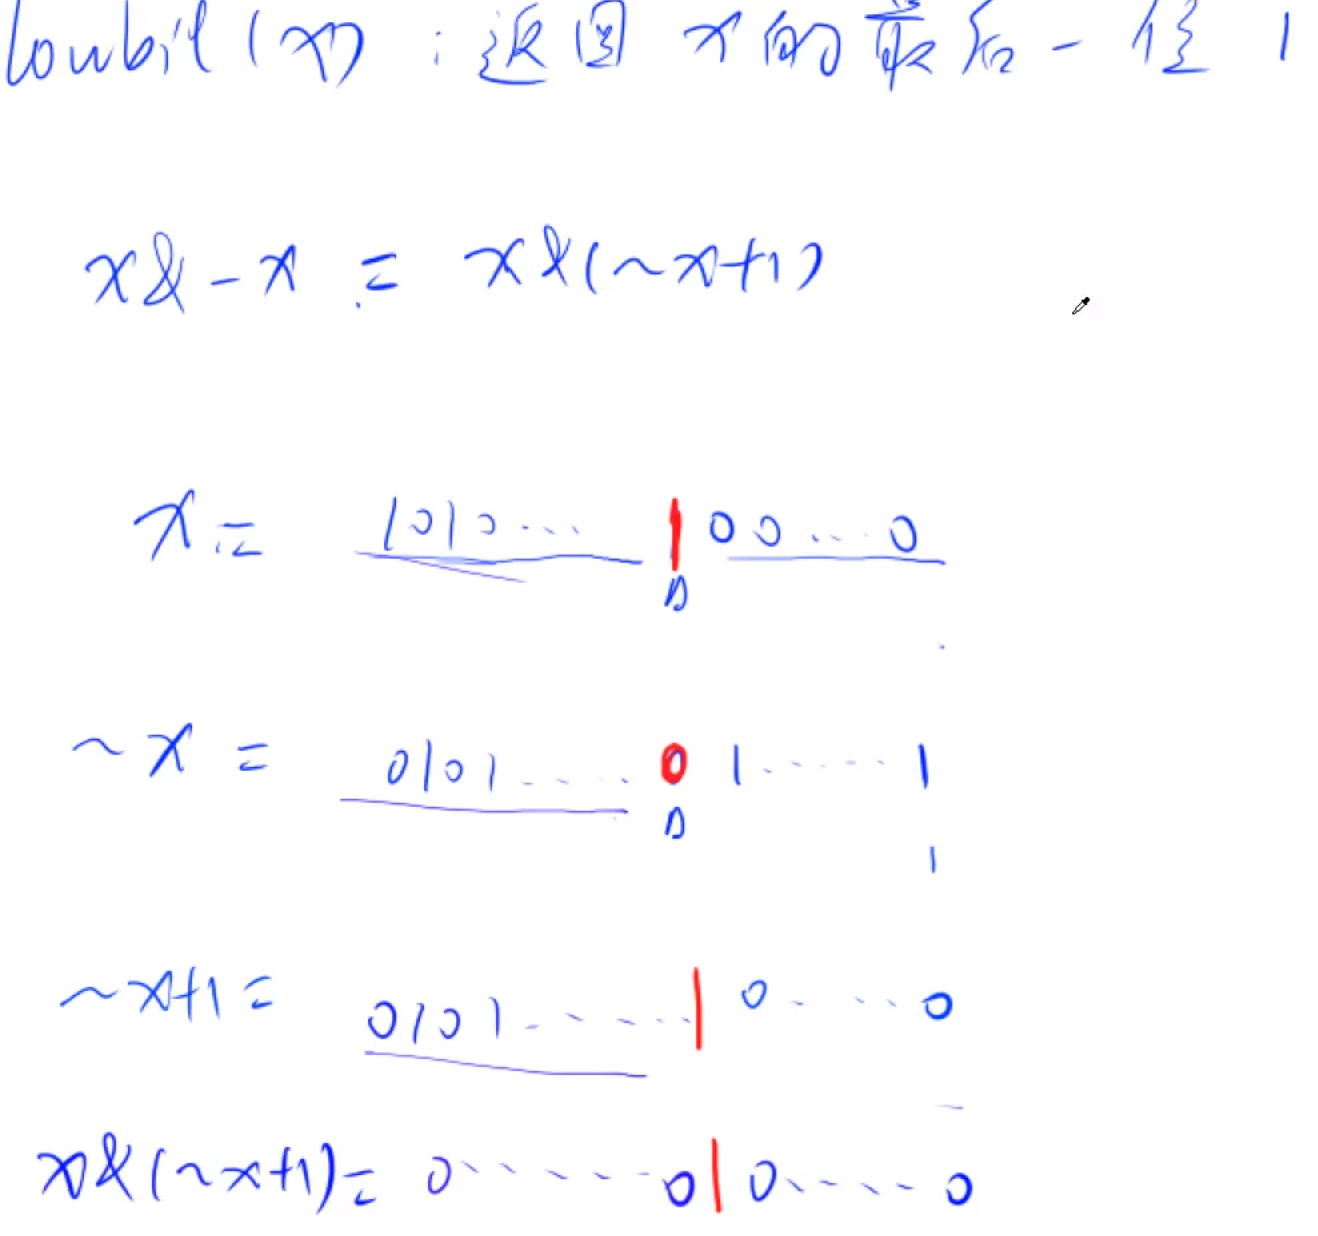 lowbit(x)：返回 x的最后一位1
x&-x = x&(~x+1)
x= 1010... 1 00...0
~x = 0101..... 0 1......1
1
~x+1= 0101...... 1 0....0
x&(~x+1)= 0......0 1 0.....0